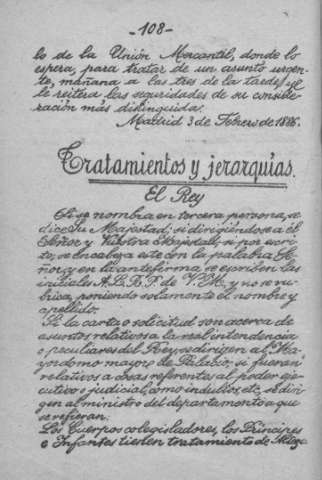 - 108 -
lo de la Unión Mercantil, donde lo
espera, para tratar de un asunto urgen-
te, mañana a las tres de la tarde, y le
reitera las seguridades de su conside-
ración más distinguida.
Madrid 3 de Febrero de 1886.
Tratamientos y jerarquías.
El Rey
Si se nombra en tercera persona, se
dice Su Majestad; si dirigiéndose a él
Señor y Vuestra Majestad; si por escri-
to, se encabeza este con la palabra Se-
ñor, y en la antefirma se escriben las
iniciales A. L. R. P. de V. M., y no se ru-
brica, poniendo solamente el nombre y
apellido.
Si la carta o solicitud son acerca de
asuntos relativos a la real intendencia
o peculiares del Rey, se dirigen al Ma-
yordomo mayor de Palacio; si fueren
relativos a cosas referentes al poder eje-
cutivo o judicial, como indultos, etc., se diri-
gen al ministro del departamento a que
se refieran.
Los Cuerpos colegisladores, los Príncipes
e Infantes tienen tratamiento de Alteza